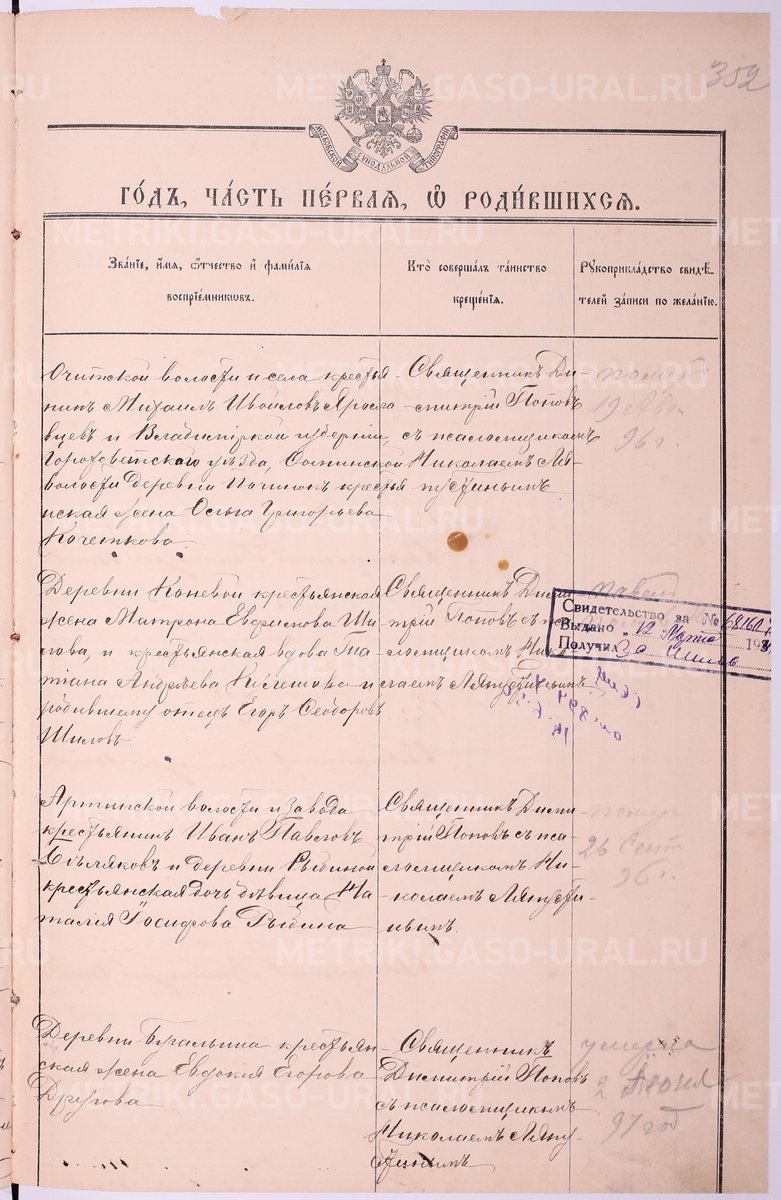 352
МОСКОВСКОЙ СѴНОДАЛЬНОЙ ТИПОГРАФІИ
ГО́ДЪ, ЧА́СТЬ ПЕ́РВАЯ, Ѡ҆ РОДИ́ВШИХСЯ.
Зва́нїе, и҆́мя, ѻ҆́тчество и҆ фами́лїя
воспрїе́мникѡвъ.
Кто̀ соверша́лъ та́инство
креще́нїя.
Рꙋкоприкла́дство свидѣ́-
телей за́писи по жела́нїю.
Ачитской волости и села кресть-
янинъ Михаилъ Ивойловъ Яросла
вцевъ и Владимірской губерніи,
Гороховетскаго уѣзда,
волости деревни Починокъ кресть
янская жена Ольга Григорьева
Кочеткова.
Священникъ Ди-
митрій Поповъ
съ псаломщикомъ
Николаемъ Ля-
пустинымъ
помер
19 Авг.
96 г.
Деревни Коневой крестьянская
жена Матрона Евфимова Ши-
лова, и крестьянская вдова Та-
тіана Андреева Килешова и
родившему отецъ Егоръ Ѳеодоровъ
Шиловъ
Священникъ Дими
трій Поповъ съ пса-
ломщикомъ Нико-
лаемъ Ляпустинымъ
Свидетельство за № 68161
Выдано „12 Марта 193
Получил За Шилов
Артинской волости и завода
крестьянинъ Иванъ Павловъ
Бѣляковъ и деревни Рыбиной
крестьянская дочь дѣвица На-
талія Іосифова Рыбина
Священникъ Дими
трій Поповъ съ пса-
ломщикомъ Ни-
колаемъ Ляпусти-
нымъ.
помер
26 Сент
96 г.
Деревни Бугалыша крестьян-
ская жена Евдокія Егорова
Другова
Священникъ
Димитрій Поповъ
съ псаломщикомъ
Николаемъ Ляпу-
стинымъ
умерла
2 Июня
97 год
METRIKI.GASO-URAL.RU